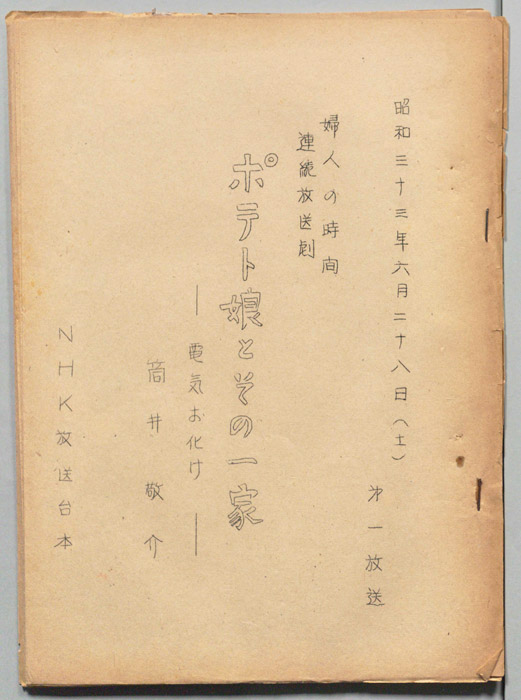 昭和三十三年六月二十八日(土)
㐧一放送
婦人の時間
連続放送劇
ポテト娘とその一家
―電気お化け―
筒井敬介
NHK放送台本